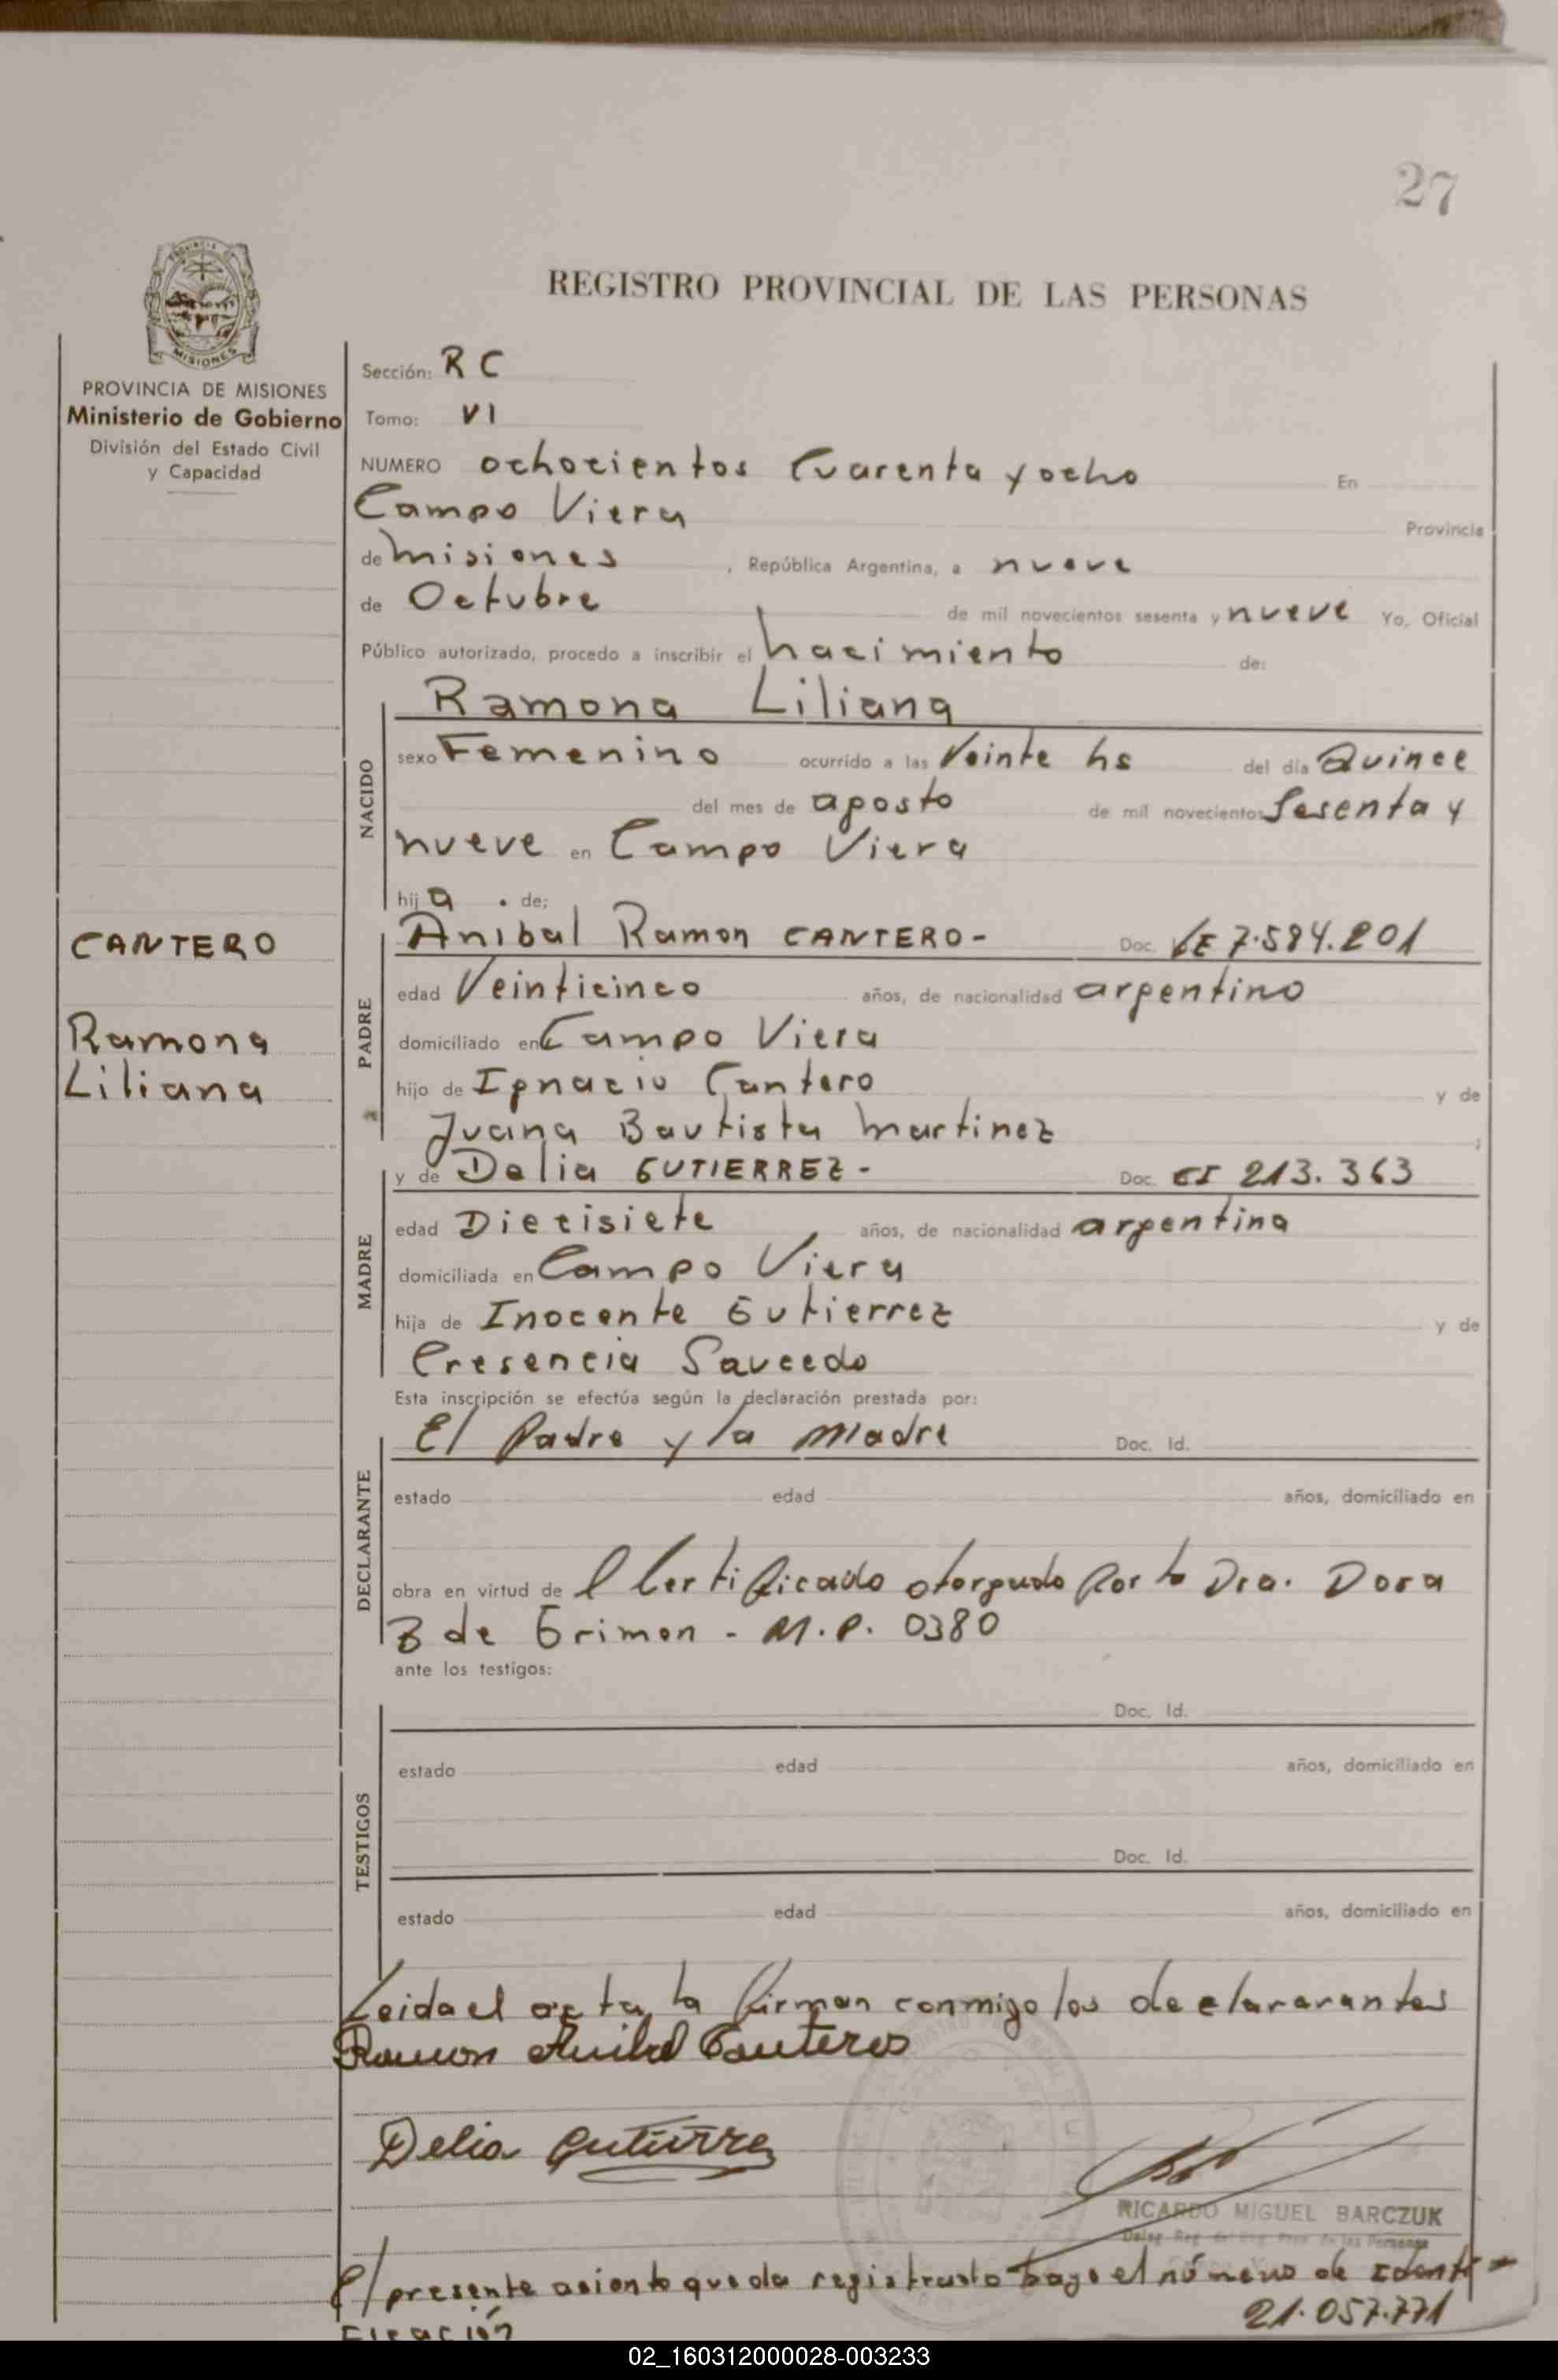 27
REGISTRO PROVINCIAL DE LAS PERSONAS
MISIONES
PROVINCIA DE MISIONES
Ministerio de Gobierno
División del Estado Civil
y Capacidad
CANTERO
Ramona
Liliana
Sección: R C
Tomo: VI
NUMERO ochocientos Cuarenta y ocho En
Campo Viera Provincia
de misiones , República Argentina, a nueve
de Octubre de mil novecientos sesenta y nueve Yo, Oficial
Público autorizado, procedo a inscribir el nacimiento de:
NACIDO
Ramona Liliana
sexo Femenino ocurrido a las Veinte hs del día Quince
del mes de agosto de mil novecientos Sesenta y
nueve en Campo Viera
hij a . de;
PADRE
Anibal Ramon CANTERO- Doc. LE 7.584.201
edad Veinticinco años, de nacionalidad argentino
domiciliado en Campo Viera
hijo de Ignacio Cantero y de
Juana Bautista Martinez ;
MADRE
y de Delia GUTIERREZ- Doc. CI 213.363
edad Diecisiete años, de nacionalidad argentina
domiciliada en Campo Viera
hija de Inocente Gutierrez y de
Cresencia Saucedo
Esta inscripción se efectúa según la declaración prestada por:
DECLARANTE
El Padre y la Madre Doc. Id.
estado edad años, domiciliado en
obra en virtud de l Certificado otorgado por la Dra. Dora
B de Grimon - M.P. 0380
ante los testigos:
TESTIGOS
Doc. Id.
estado edad años, domiciliado en
Doc. Id.
estado edad años, domiciliado en
Leida el acta la firman conmigo los declararantes
Ramon Anibal Canteros
Delia Gutierrez
RICARDO MIGUEL BARCZUK
El presente asiento queda registrado bajo el número de Identi-
ficación 21.057.771
02_160312000028-003233